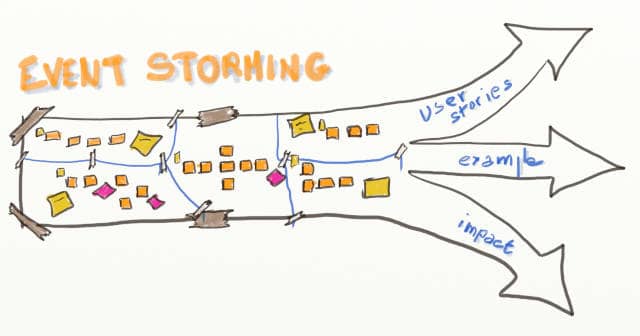 EVENT STORMING
User
stories
example
impact